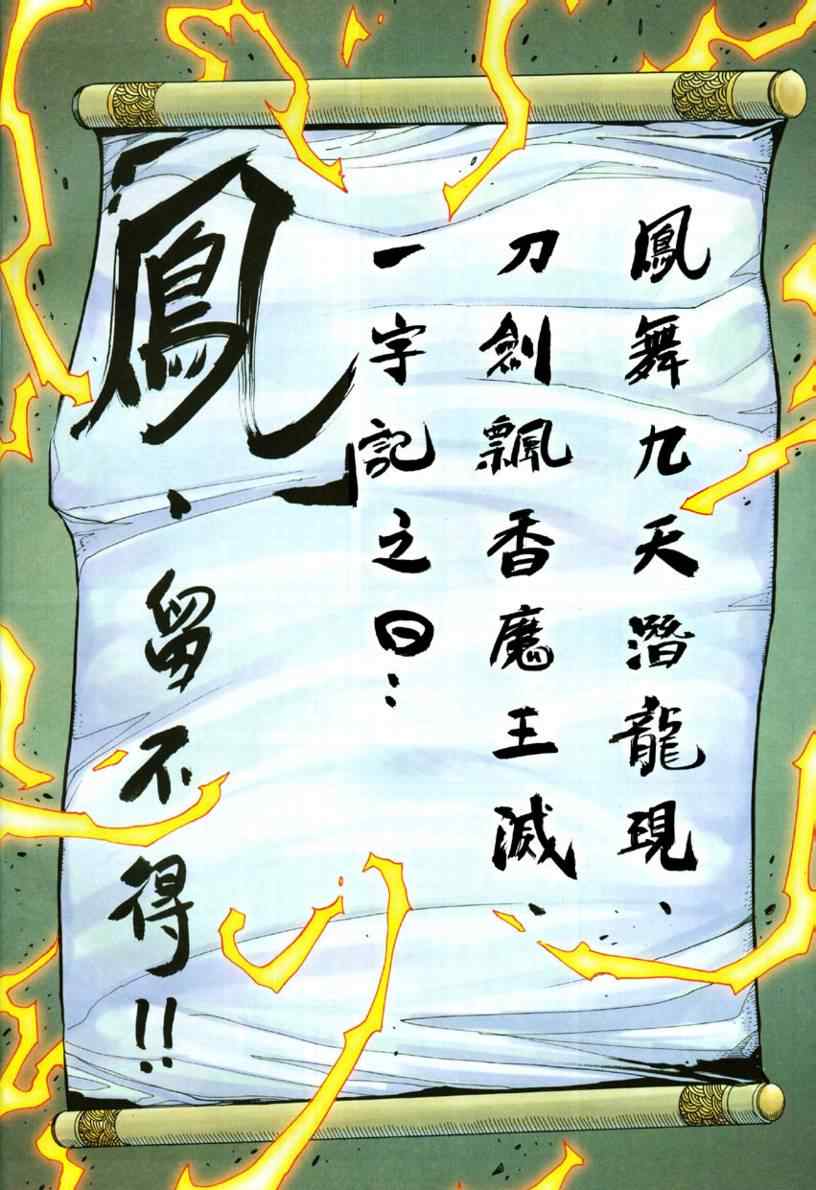 鳳舞九天潛龍現、
刀劍飄香魔王滅、
一字記之曰：
「鳳」、留不得!!